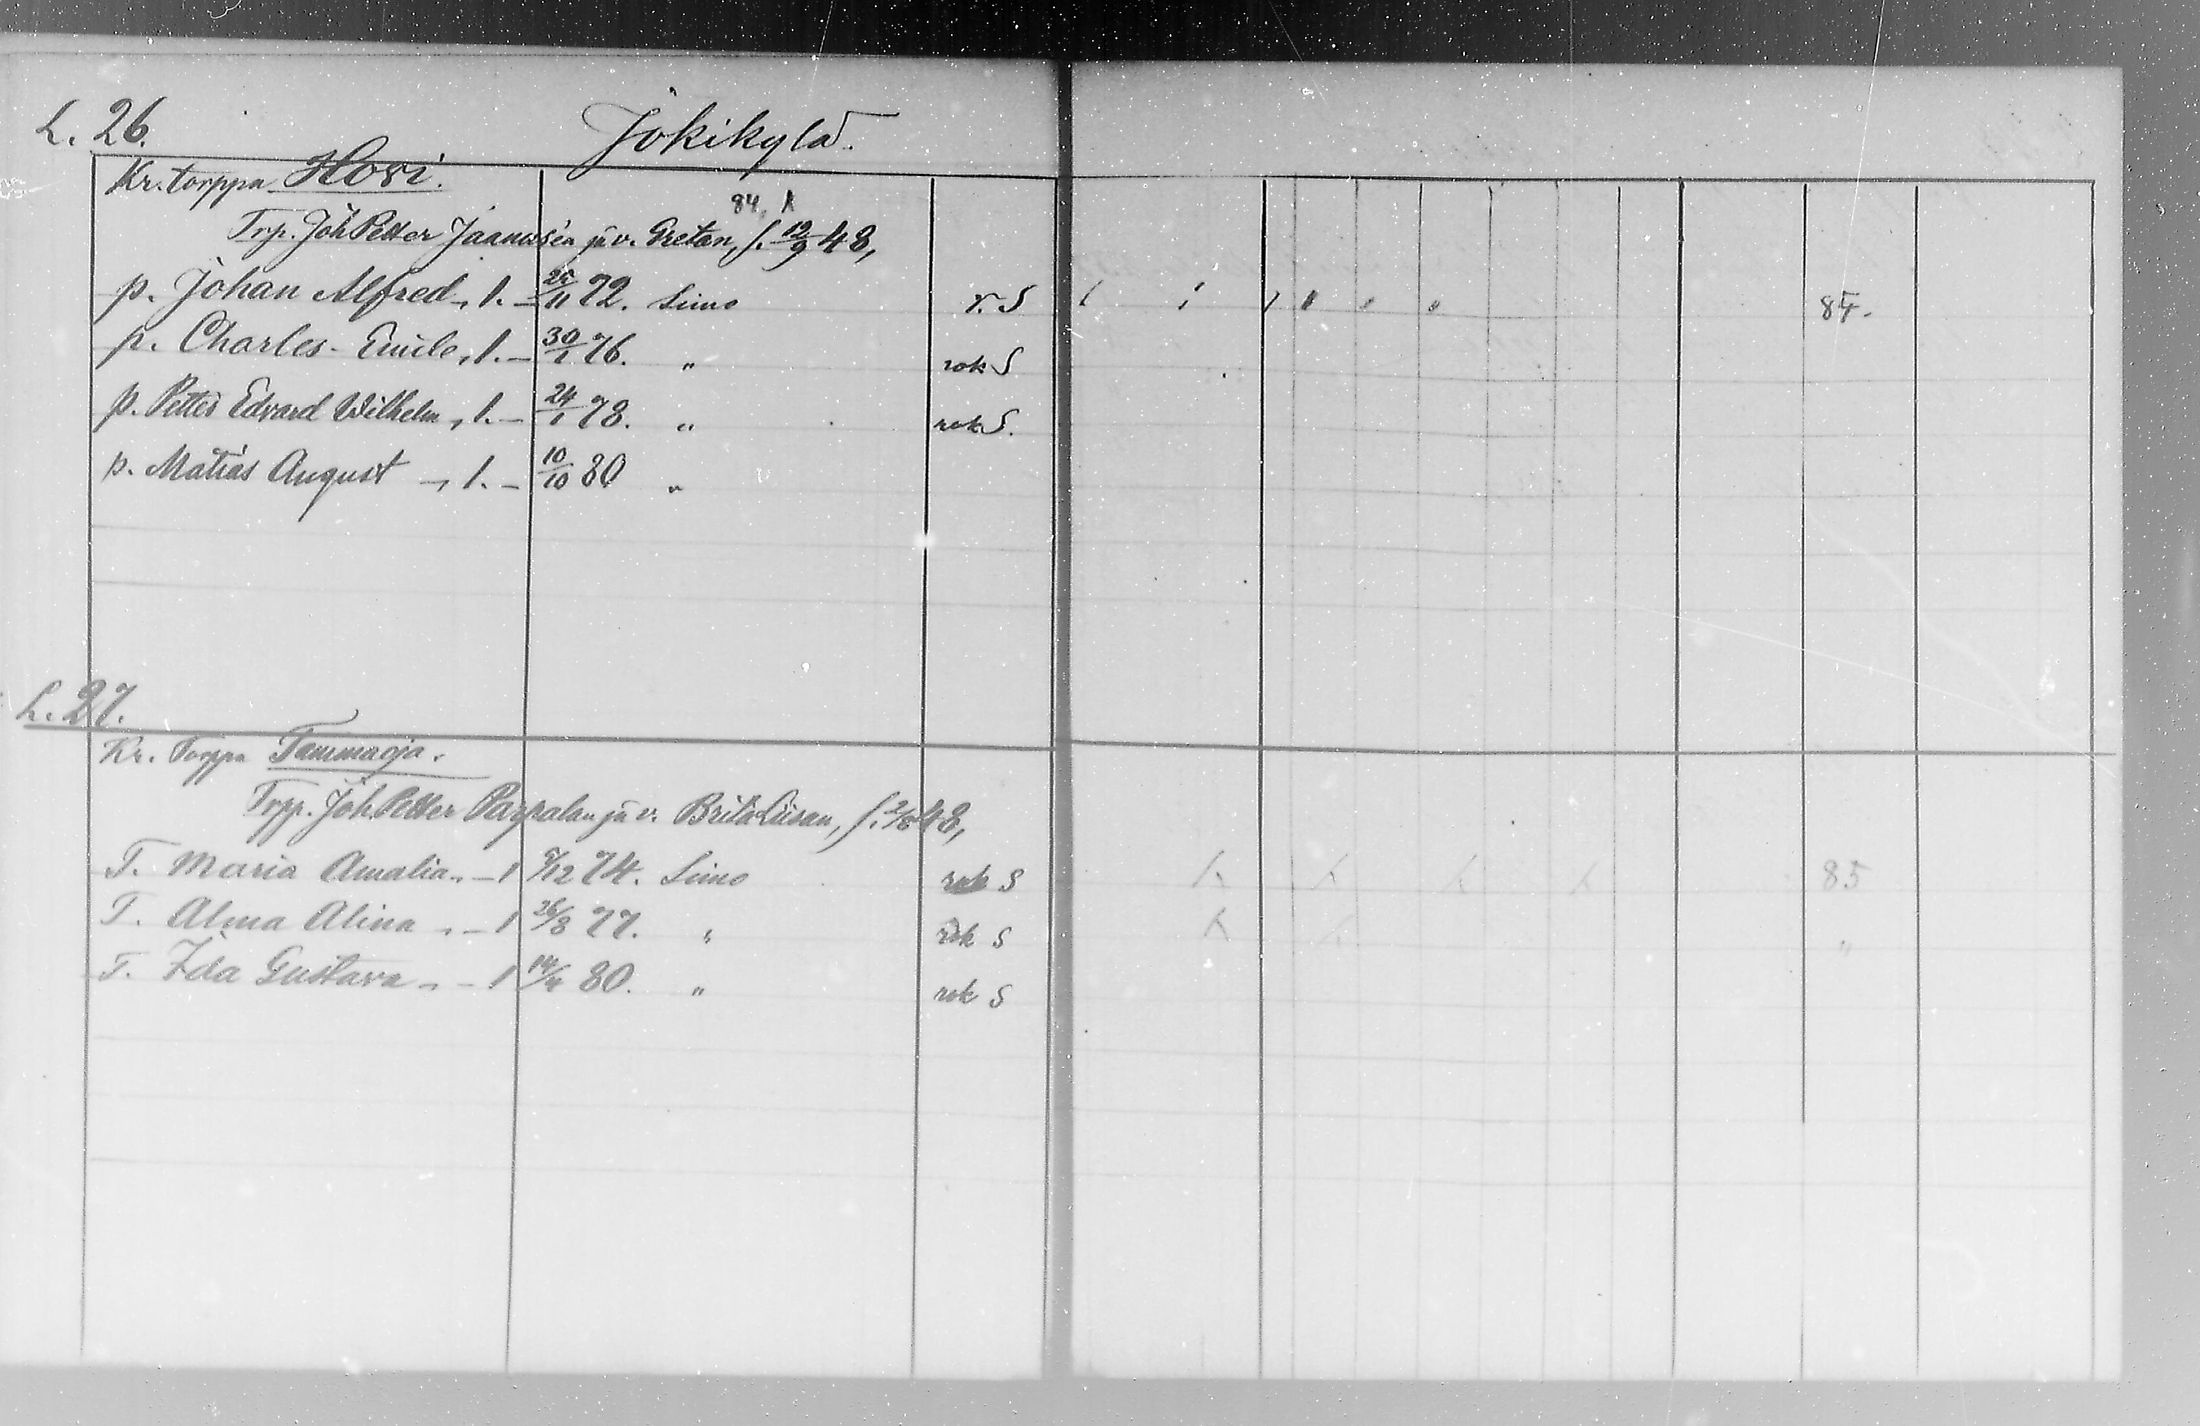 L. 26. Jokikylä.
Kr. torppa Hovi.
84.
Trp. Joh Petter Jaanusen ja v. Gretan, s. 12/9 48,
p. Johan Alfred, 1. 25/11 72. Simo r. S 85.
p. Charles-Emile, 1. 30/1 76. " rok S
p. Petter Edvard Wilhelm, 1. 24/1 78. " rok S.
p. Matias August, 1. 10/10 80 "
L. 27.
Kr. Torppa Tammaoja.
Trpp. Joh. Petter Parpalan ja v. Brita Liisan, s. 2/8 48,
T. Maria Amalia 1 9/12 74. Simo rok S 85
T. Alma Alina 1 26/8 77. " rok S "
T. Ida Gustava 1 14/4 80. " rok S